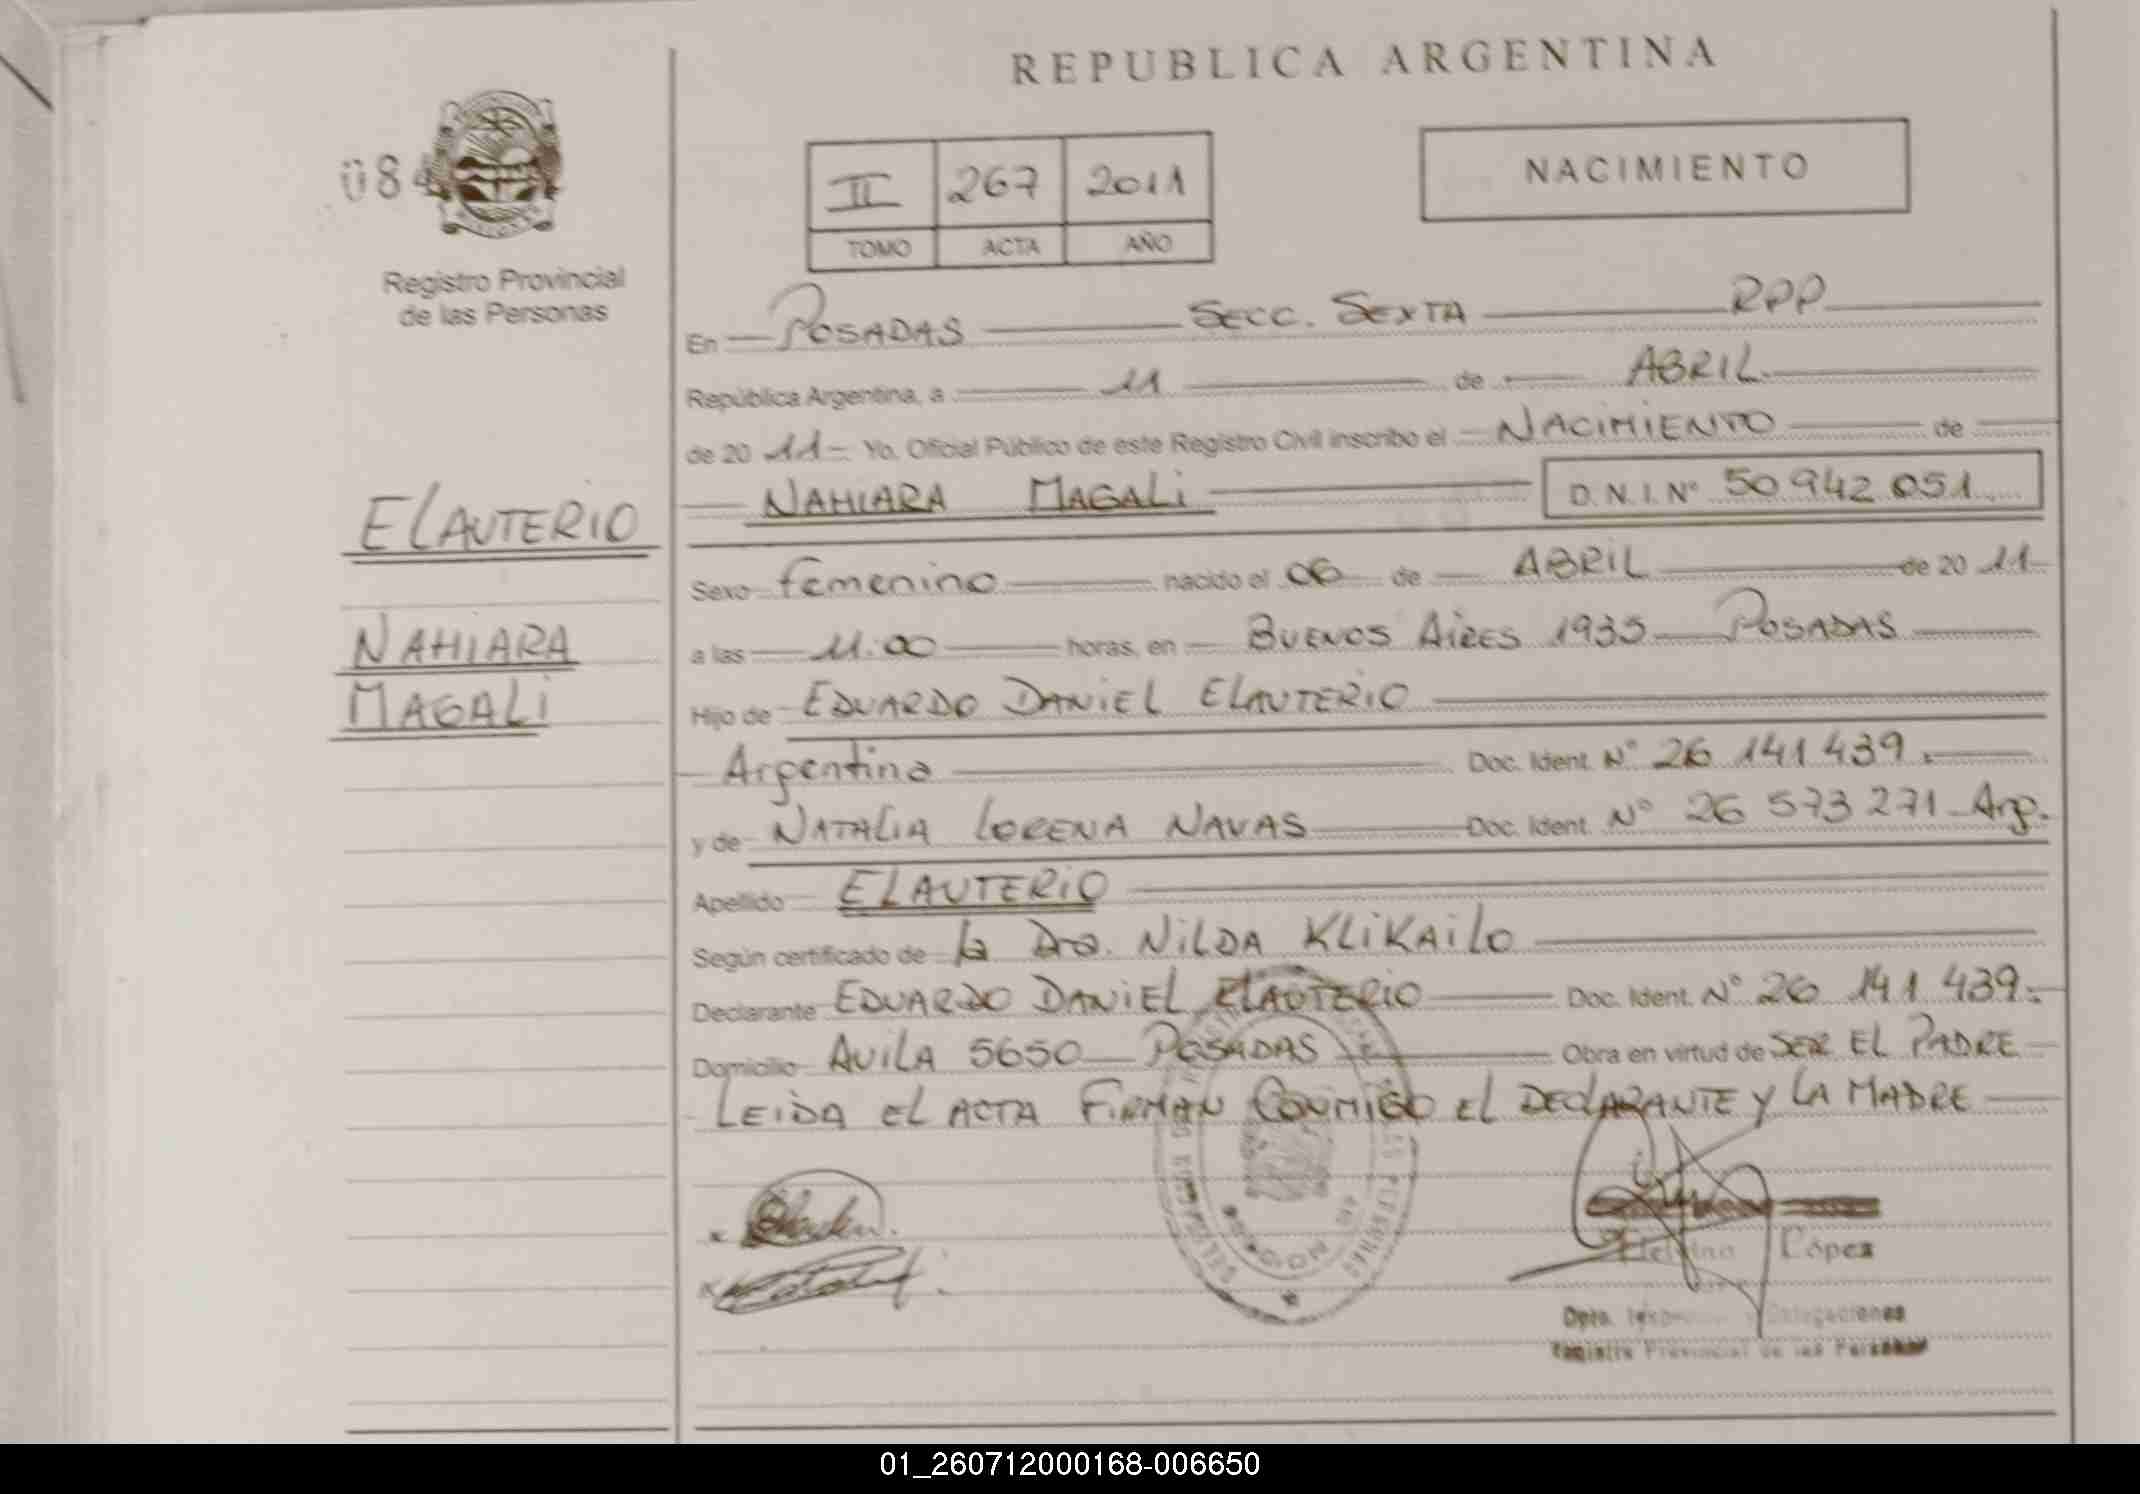 REPUBLICA ARGENTINA
084
Registro Provincial
de las Personas
II 267 2011
TOMO ACTA AÑO
NACIMIENTO
En POSADAS SECC. SEXTA RPP
República Argentina, a 11 de ABRIL
de 20 11 Yo, Oficial Público de este Registro Civil inscribo el NACIMIENTO de
NAHIARA MAGALI D.N.I. Nº 50 942 051
ELAUTERIO
NAHIARA
MAGALI
Sexo femenino nacido el 06 de ABRIL de 20 11
a las 11:00 horas, en BUENOS AIRES 1935 POSADAS
Hijo de EDUARDO DANIEL ELAUTERIO
Argentino Doc. Ident. Nº 26 141 439
y de NATALIA LORENA NAVAS Doc. Ident. Nº 26 573 271 Arg.
Apellido ELAUTERIO
Según certificado de la Dra. NILDA KLIKAILO
Declarante EDUARDO DANIEL ELAUTERIO Doc. Ident. Nº 26 141 439
Domicilio AVILA 5650 POSADAS Obra en virtud de SER EL PADRE
LEIDA EL ACTA FIRMAN CONMIGO EL DECLARANTE Y LA MADRE
López
Dpto. Delegaciones
Registro Provincial de las Personas
01_260712000168-006650